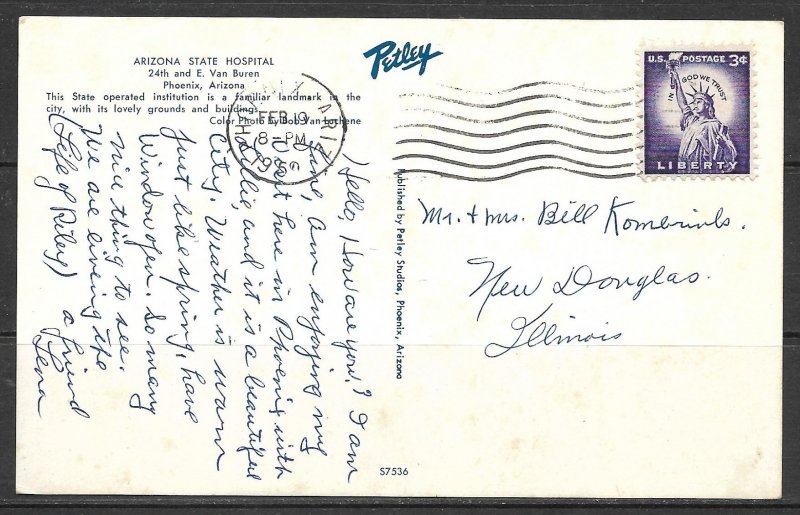 ARIZONA STATE HOSPITAL
24th and E. Van Buren
Phoenix, Arizona
This State operated institution is a familiar landmark in the
city, with its lovely grounds and buildings.
Color Photo by Bob Van Luchene
Petley
PHOENIX ARIZ.
FEB 19
8-PM
195
U.S. POSTAGE 3¢
IN GOD WE TRUST
LIBERTY
Hello, How are you? I am
fine, Am enjoying my
visit here in Phoenix with
and it is a beautiful
City. Weather is warm
just like spring, have
Window open. So many
nice thing to see.
We are living the
(Life of Riley) a friend
Lena
Published by Petley Studios, Phoenix, Arizona
Mr. & Mrs. Bill
New Douglas.
Illinois
S7536